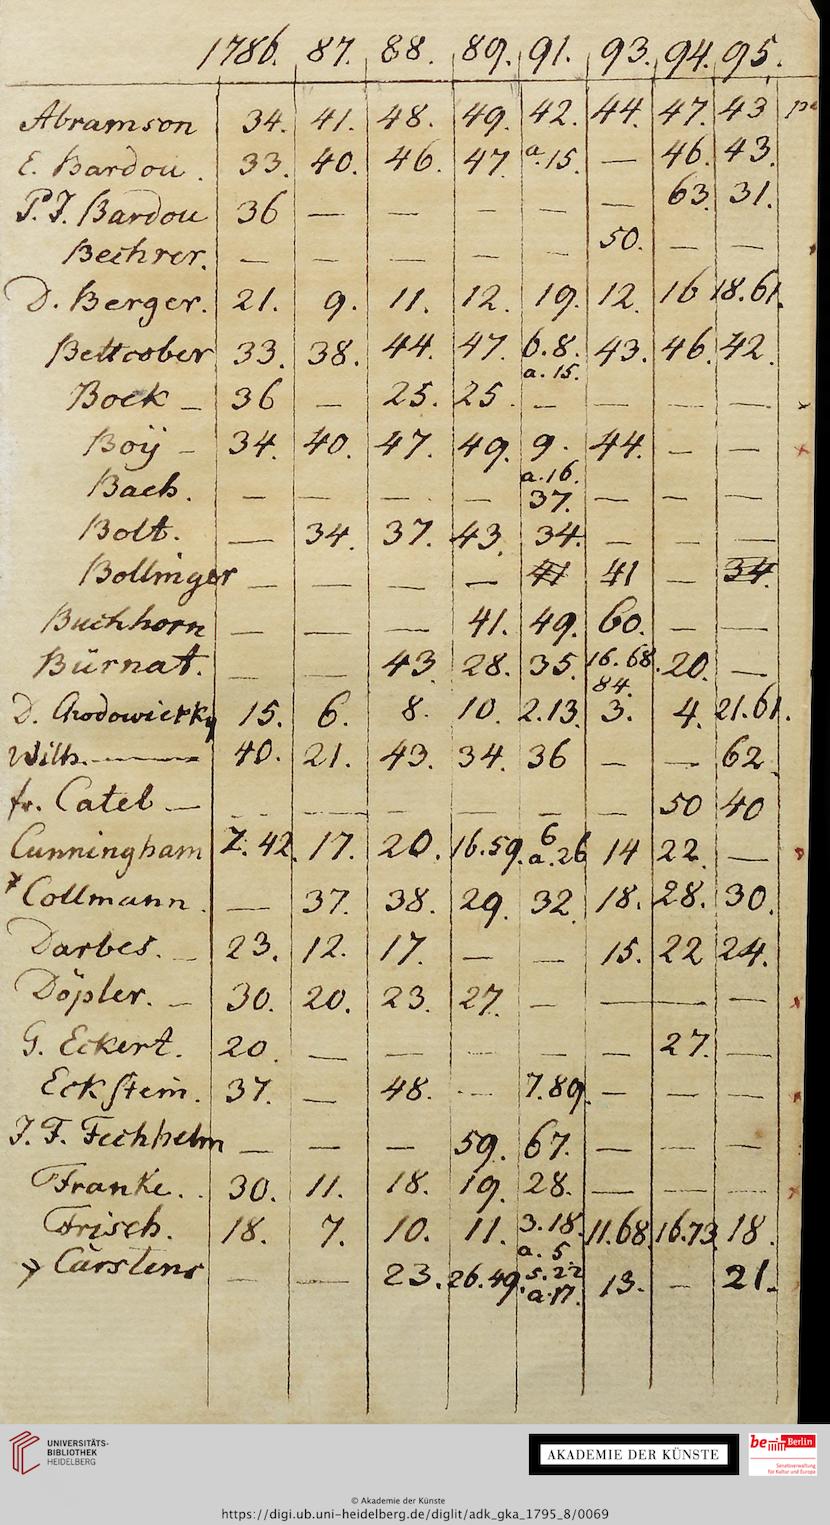 1786. 87. 88. 89. 91. 93. 94. 95.
Abramson 34. 41. 48. 49. 42. 44. 47. 43
E. Bardou. 33. 40. 46. 47. a.15. — 46. 43.
P. J. Bardou 36 — — — — — 63. 31.
Bechrer. — — — — — 50. — —
D. Berger. 21. 9. 11. 12. 19. 12. 16 18.61.
Bettcober 33. 38. 44. 47. 6.8. 43. 46. 42.
a. 15.
Bock — 36 — 25. 25. — — — —
Boÿ — 34. 40. 47. 49. 9. 44. — —
a.16.
Bach. — — — — 37. — — —
Bolt. — 34. 37. 43. 34. — — —
Bollinger — — — — 41 41 — 34.
Buchhorn — — — 41. 49. 60. — —
Bürnat. — — 43. 28. 35. 16. 68. 20. —
84.
D. Chodowiecky 15. 6. 8. 10. 2.13. 3. 4. 21.61.
Wilh. — 40. 21. 43. 34. 36 — — 62.
fr. Catel — — — — — — — 50 40
Cunningham Z. 42. 17. 20. 16.59. 6 a.26 14 22. —
Collmann. — 37. 38. 29. 32. 18. 28. 30.
Darbes. — 23. 12. 17. — — 15. 22 24.
Döpler. — 30. 20. 23. 27. — — — —
G. Eckert. 20. — — — — — 27. —
Eckstein. 37. — 48. — 7.89. — — —
J. F. Fechhelm — — — 59. 67. — — —
Franke. 30. 11. 18. 19. 28. — — —
Frisch. 18. 7. 10. 11. 3.18. 11.68. 16.73. 18.
a. 5
Carstens — — 23. 26.49. 5.22 13. — 21.
a.17.
UNIVERSITÄTS-
BIBLIOTHEK
HEIDELBERG
AKADEMIE DER KÜNSTE
be Berlin
Senatsverwaltung
für Kultur und Europa
© Akademie der Künste
https://digi.ub.uni-heidelberg.de/diglit/adk_gka_1795_8/0069